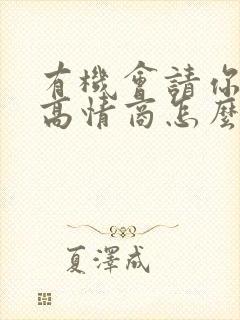 有機會請你
高情商怎麼
夏澤成